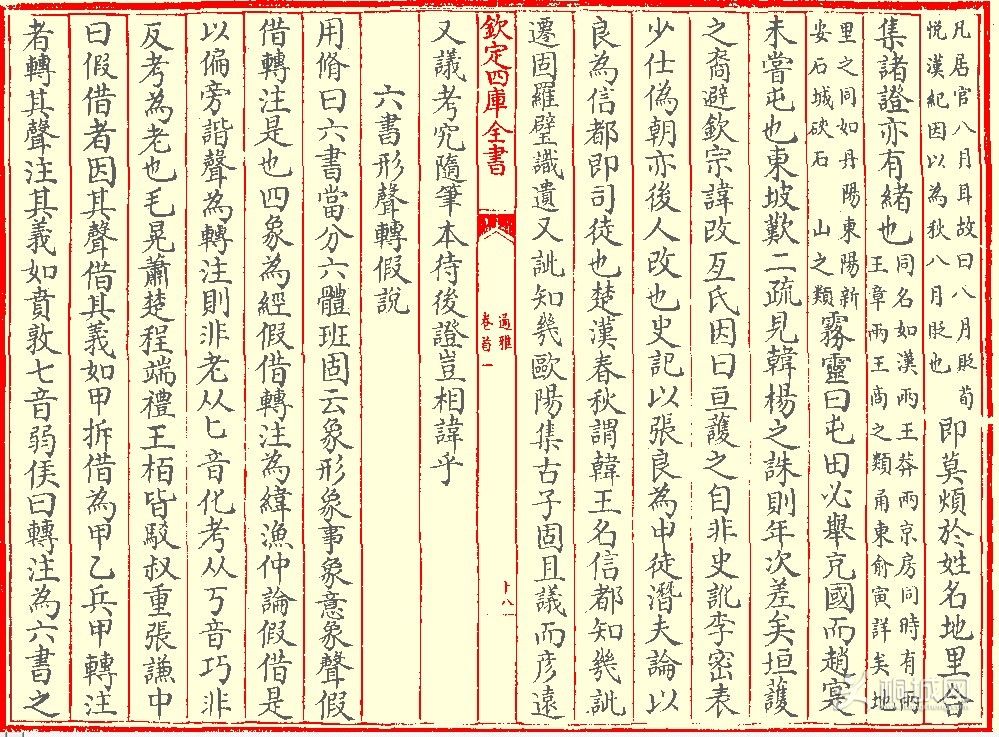 凡居官八月耳故曰八月貶荀
悅漢紀因以為秋八月貶也
即莫煩於姓名地里合
集諸證亦有緒也
同名如漢兩王莽兩京房同時有兩
王章兩王商之類甬東俞寅詳矣地
里之同如丹陽東陽新
安石城硤石山之類
霧靈曰屯田必舉充國而趙寔
未嘗屯也東坡歎二疏見韓楊之誅則年次差矣垣護
之裔避欽宗諱改亙氏因曰亘護之自非史訛李密表
少仕偽朝亦後人改也史記以張良為申徒潛夫論以
良為信都即司徒也楚漢春秋謂韓王名信都知幾訿
遷固羅璧識遺又訿知幾歐陽集古子固且議而彥遠
欽定四庫全書
通雅
卷首一
十八
又議考究隨筆本待後證豈相諱乎
六書形聲轉假說
用脩曰六書當分六體班固云象形象事象意象聲假
借轉注是也四象為經假借轉注為緯漁仲論假借是
以偏旁諧聲為轉注則非老从匕音化考从丂音巧非
反考為老也毛晃蕭楚程端禮王栢皆駁叔重張謙中
曰假借者因其聲借其義如甲拆借為甲乙兵甲轉注
者轉其聲注其義如賁敦七音弱侯曰轉注為六書之